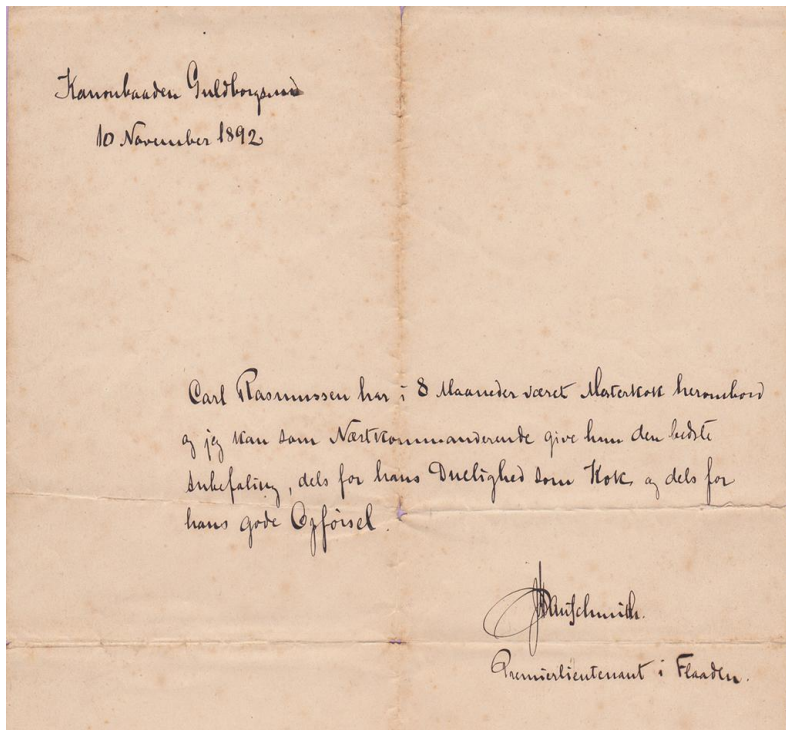 Kanonbaaden Guldborgsund
10 November 1892
Carl Rasmussen har i 8 Maaneder været Mesterkok herombord
og jeg kan som Næstkommanderende give ham den bedste
Anbefaling, dels for hans Duelighed som Kok og dels for
hans gode Opførsel.
Premierlieutenant i Flaaden.